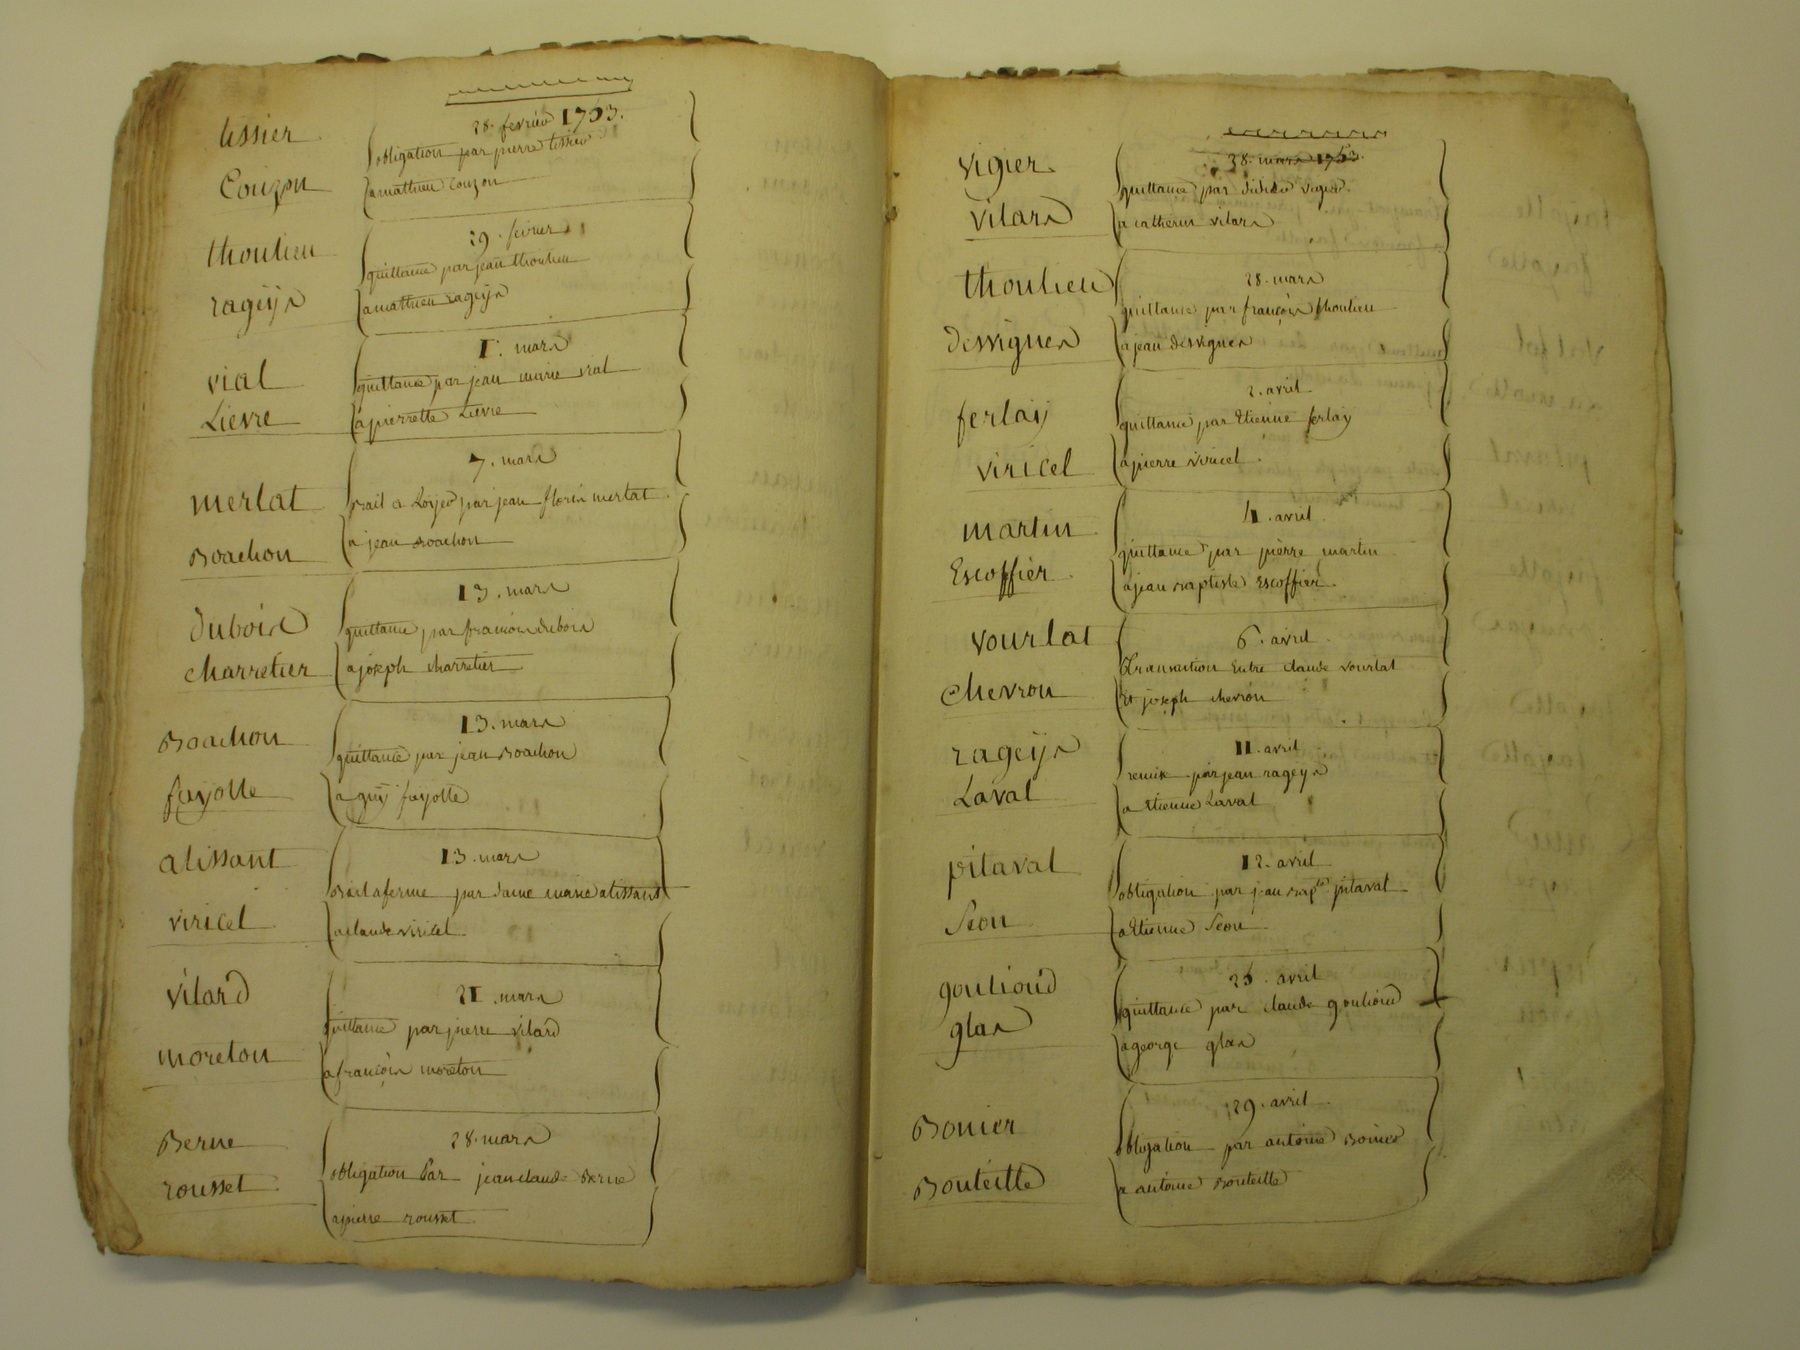 tissier
28. fevrier 1763.
obligation par pierre tissier
Couzon
a mathieu couzon
thoulieu
29. fevrier
quittance par jean thoulieu
rageÿs
a mathieu rageÿs
vial
1. mars
quittance par jean marie vial
Lievre
a pierrette Lievre
merlat
7. mars
Bail a Loÿer par jean florin merlat
Boachon
a jean Boachon
dubois
13. mars
quittance par francois dubois
charretier
a joseph charretier
Boachon
13. mars
quittance par jean Boachon
fayolle
a guÿ fayolle
alissant
13. mars
Bail a ferme par dame marie alissant
viricel
a claude viricel
vilard
21. mars
quittance par pierre vilard
moreton
a françois moreton
Berne
28. mars
obligation Par jean claude Berne
rousset
a pierre rousset
vigier
28. mars 1763.
quittance par didier vigier
vilars
a catherin vilars
thoulieu
28. mars
quittance par françois thoulieu
dessignes
a jean dessignes
ferlaÿ
2. avril
quittance par Etienne ferlaÿ
viricel
a pierre viricel
martin
4. avril
quittance par pierre martin
Escoffier
a jean Baptiste Escoffier
vourlat
6. avril
transaction Entre claude vourlat
chevron
Et joseph chevron
rageÿs
11. avril
remise par jean rageÿs
Laval
a Etienne Laval
pitaval
12. avril
obligation par jean Bap.te pitaval
Seon
a Etienne Seon
goulioud
25. avril
quittance par claude goulioud
glas
a george glas
Bonier
29. avril
obligation par antoine Bonier
Bouteille
a antoine Bouteille